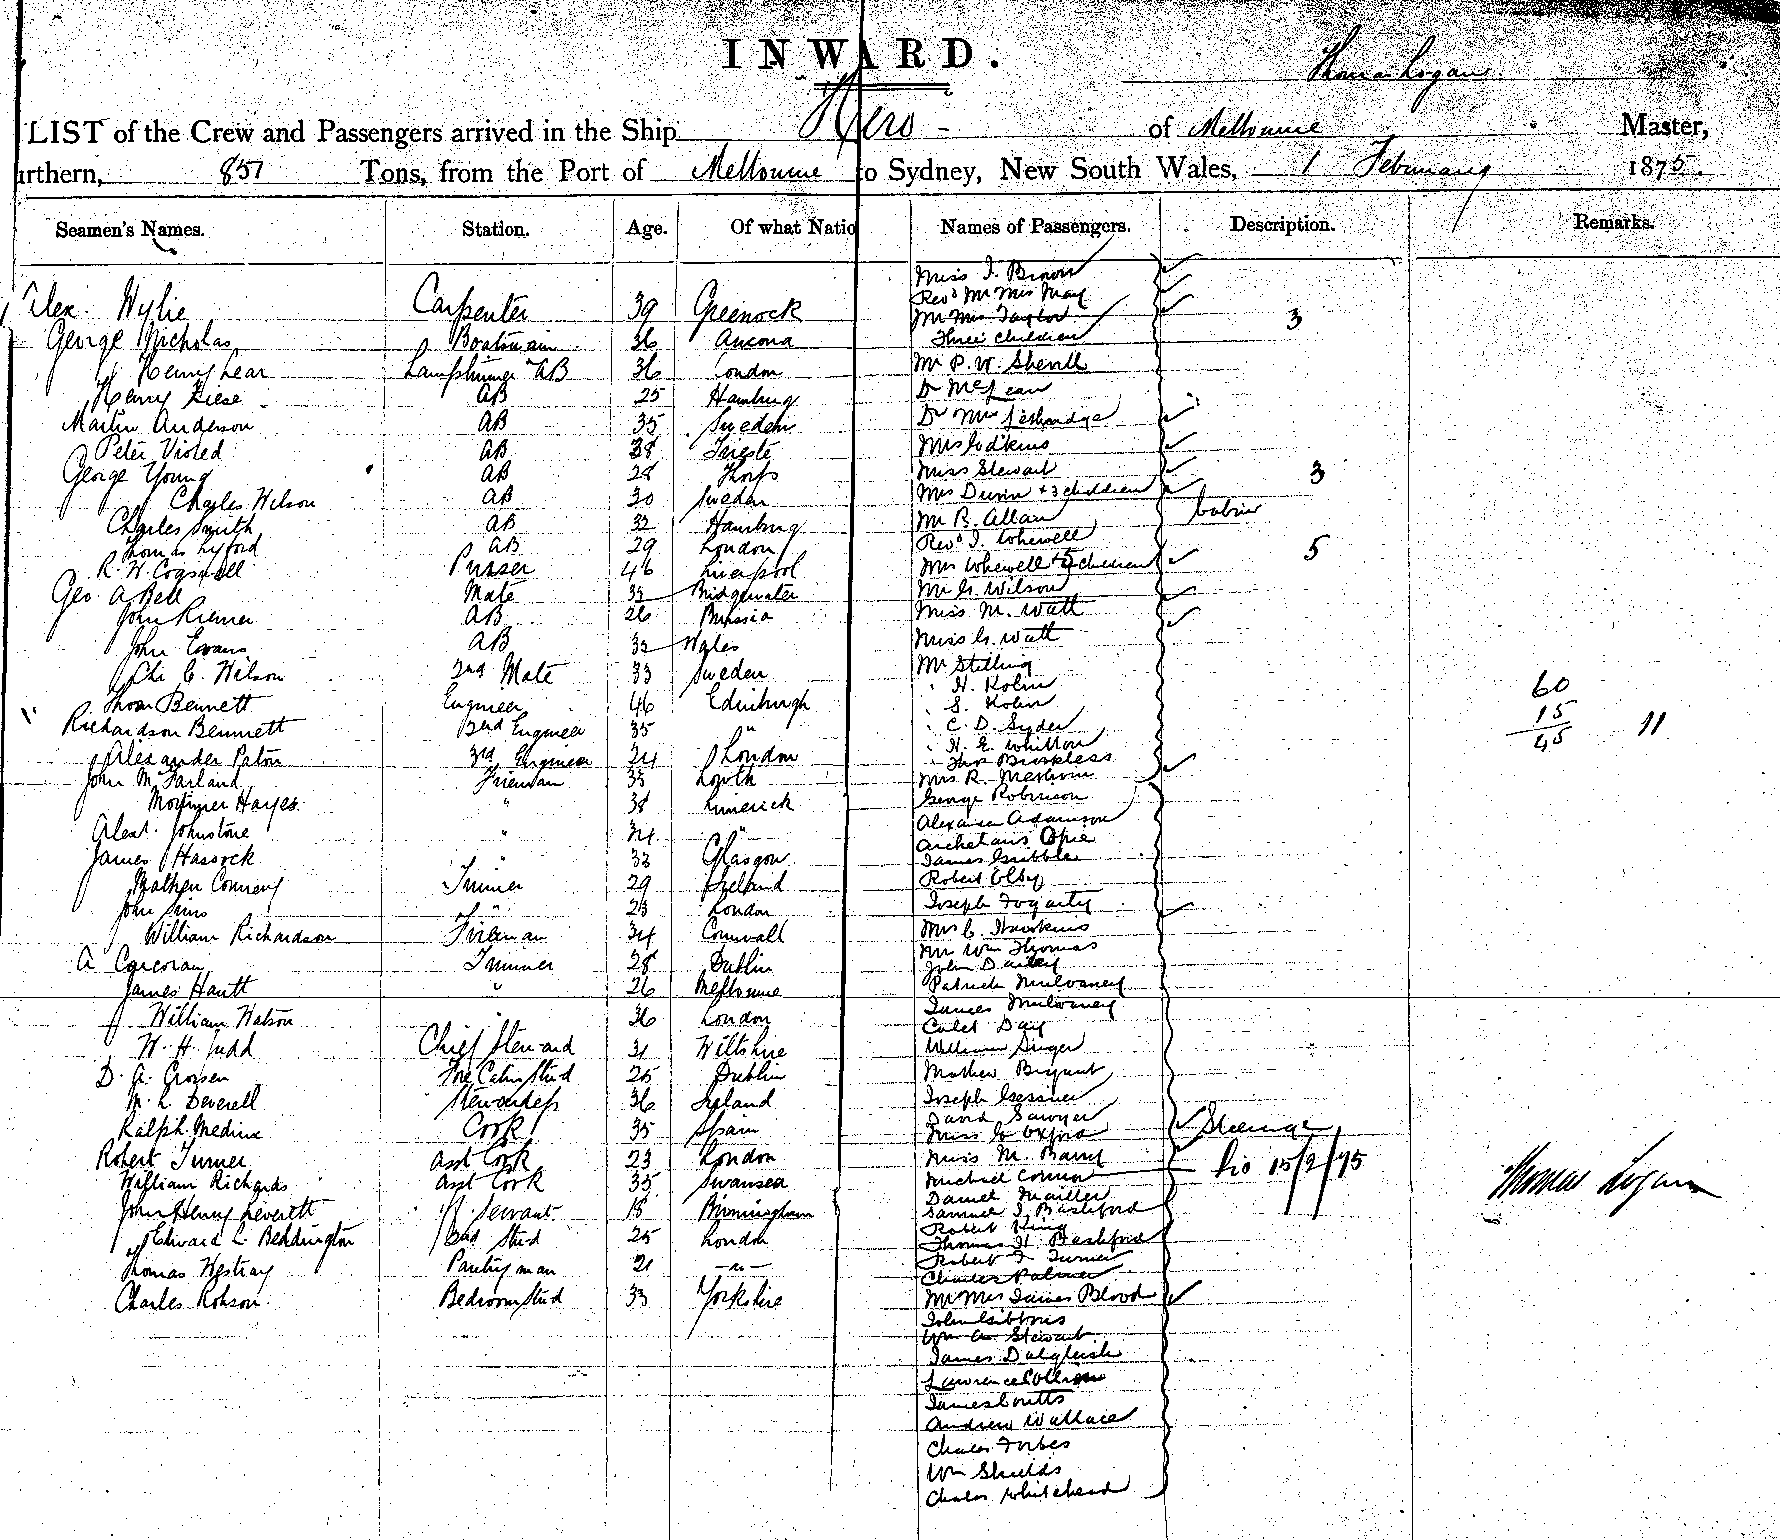 INWARD.
Thomas Logan
LIST of the Crew and Passengers arrived in the Ship Hero of Melbourne Master,
urthern, 857 Tons, from the Port of Melbourne to Sydney, New South Wales, 1 February 1875.
Seamen's Names. Station. Age. Of what Natio Names of Passengers. Description. Remarks.
Alex. Wylie Carpenter 39 Greenock
George Nicholas Boatswain 36 Ancona
Henry Lear Lamptrimmer AB 36 London
Henry Riese AB 25 Hamburg
Martin Anderson AB 35 Sweden
Peter Violed AB 38 Trieste
George Young AB 28
Charles Wilson AB 30 Sweden
Charles Smith AB 32 Hamburg
Thomas Lyford AB 29 London
R. W. Cogswell Purser 46 Liverpool
Geo. A Bell Mate 33 Bridgewater
John Riemer AB 26
John Evans AB 32 Wales
Chs C. Wilson 2nd Mate 33 Sweden
Thos Bennett Engineer 46 Edinburgh
Richardson Bennett 2nd Engineer 35 "
Alexander Paton 3rd Engineer 24 London
John McFarland Fireman 33 Louth
Mortimer Hayes " 38 Limerick
Alexr. Johnstone " 24 "
James Hassock " 33 Glasgow
Mathew Conneny Trimmer 29 Ireland
John Sims " 23 London
William Richardson Fireman 34 Cornwall
A Corcoran Trimmer 28 Dublin
James Hautt " 26 Melbourne
William Watson 36 London
W. H. Judd Chief Steward 31 Wiltshire
D. A. Crossen Fore Cabin Stwd 25 Dublin
M. L. Deverell Stewardess 36 Ireland
Ralph Medina Cook 35 Spain
Robert Turner asst Cook 23 London
William Richards asst Cook 35 Swansea
John Henry Leverett Servant 18 Birmingham
Edward L Beddington 2nd Stwd 25 London
Thomas Westray Pantryman 21 — " —
Charles Robson Bedroom Stwd 33 Yorkshire
Miss J. Brown
Revd Mr Mrs May
Mr Mrs Taylor 3
Three children
Mr P. W. Sherill
Dr McLean
Dr Mrs Lethbridge
Mrs Jodkins
Miss Stewart 3
Mrs Dunn + 3 children
Mr B. Allan Cabin
Revd J. Whewell
Mrs Whewell + 5 children 5
Mr G. Wilson
Miss M. Watt
Miss G. Watt
Mr Stilling
" H. Kolin
" S. Kolin
" C. D. Syder
" H. E. Whitton
" Thos Buckless
Mrs R. Meshom
George Robinson
Alexander Adamson
Archelaus Opie
James Gribble
Robert Elby
Joseph Fogarty
Mrs C. Hawkins
Mr Wm Thomas
John Dailey
Patrick Mulvaney
James Mulvaney
Calet Day
William Singer
Mathew Bryant
Joseph Gessner
David Sawyer
Miss G Oxford Steerage
Miss M. Barry
Michael Connor No 15/2/75
Daniel Mailler
Samuel J. Bashford
Robert King
Thomas H. Bashford
Robert F. Turner
Charles Palmer
Mr Mrs James Blood
John Gibbons
Wm A. Stewart
James Dalgleish
Lawrence Collison
James Coutts
Andrew Wallace
Charles Forbes
Wm Shields
Charles Whitehead
60
15
45 11
Thomas Logan